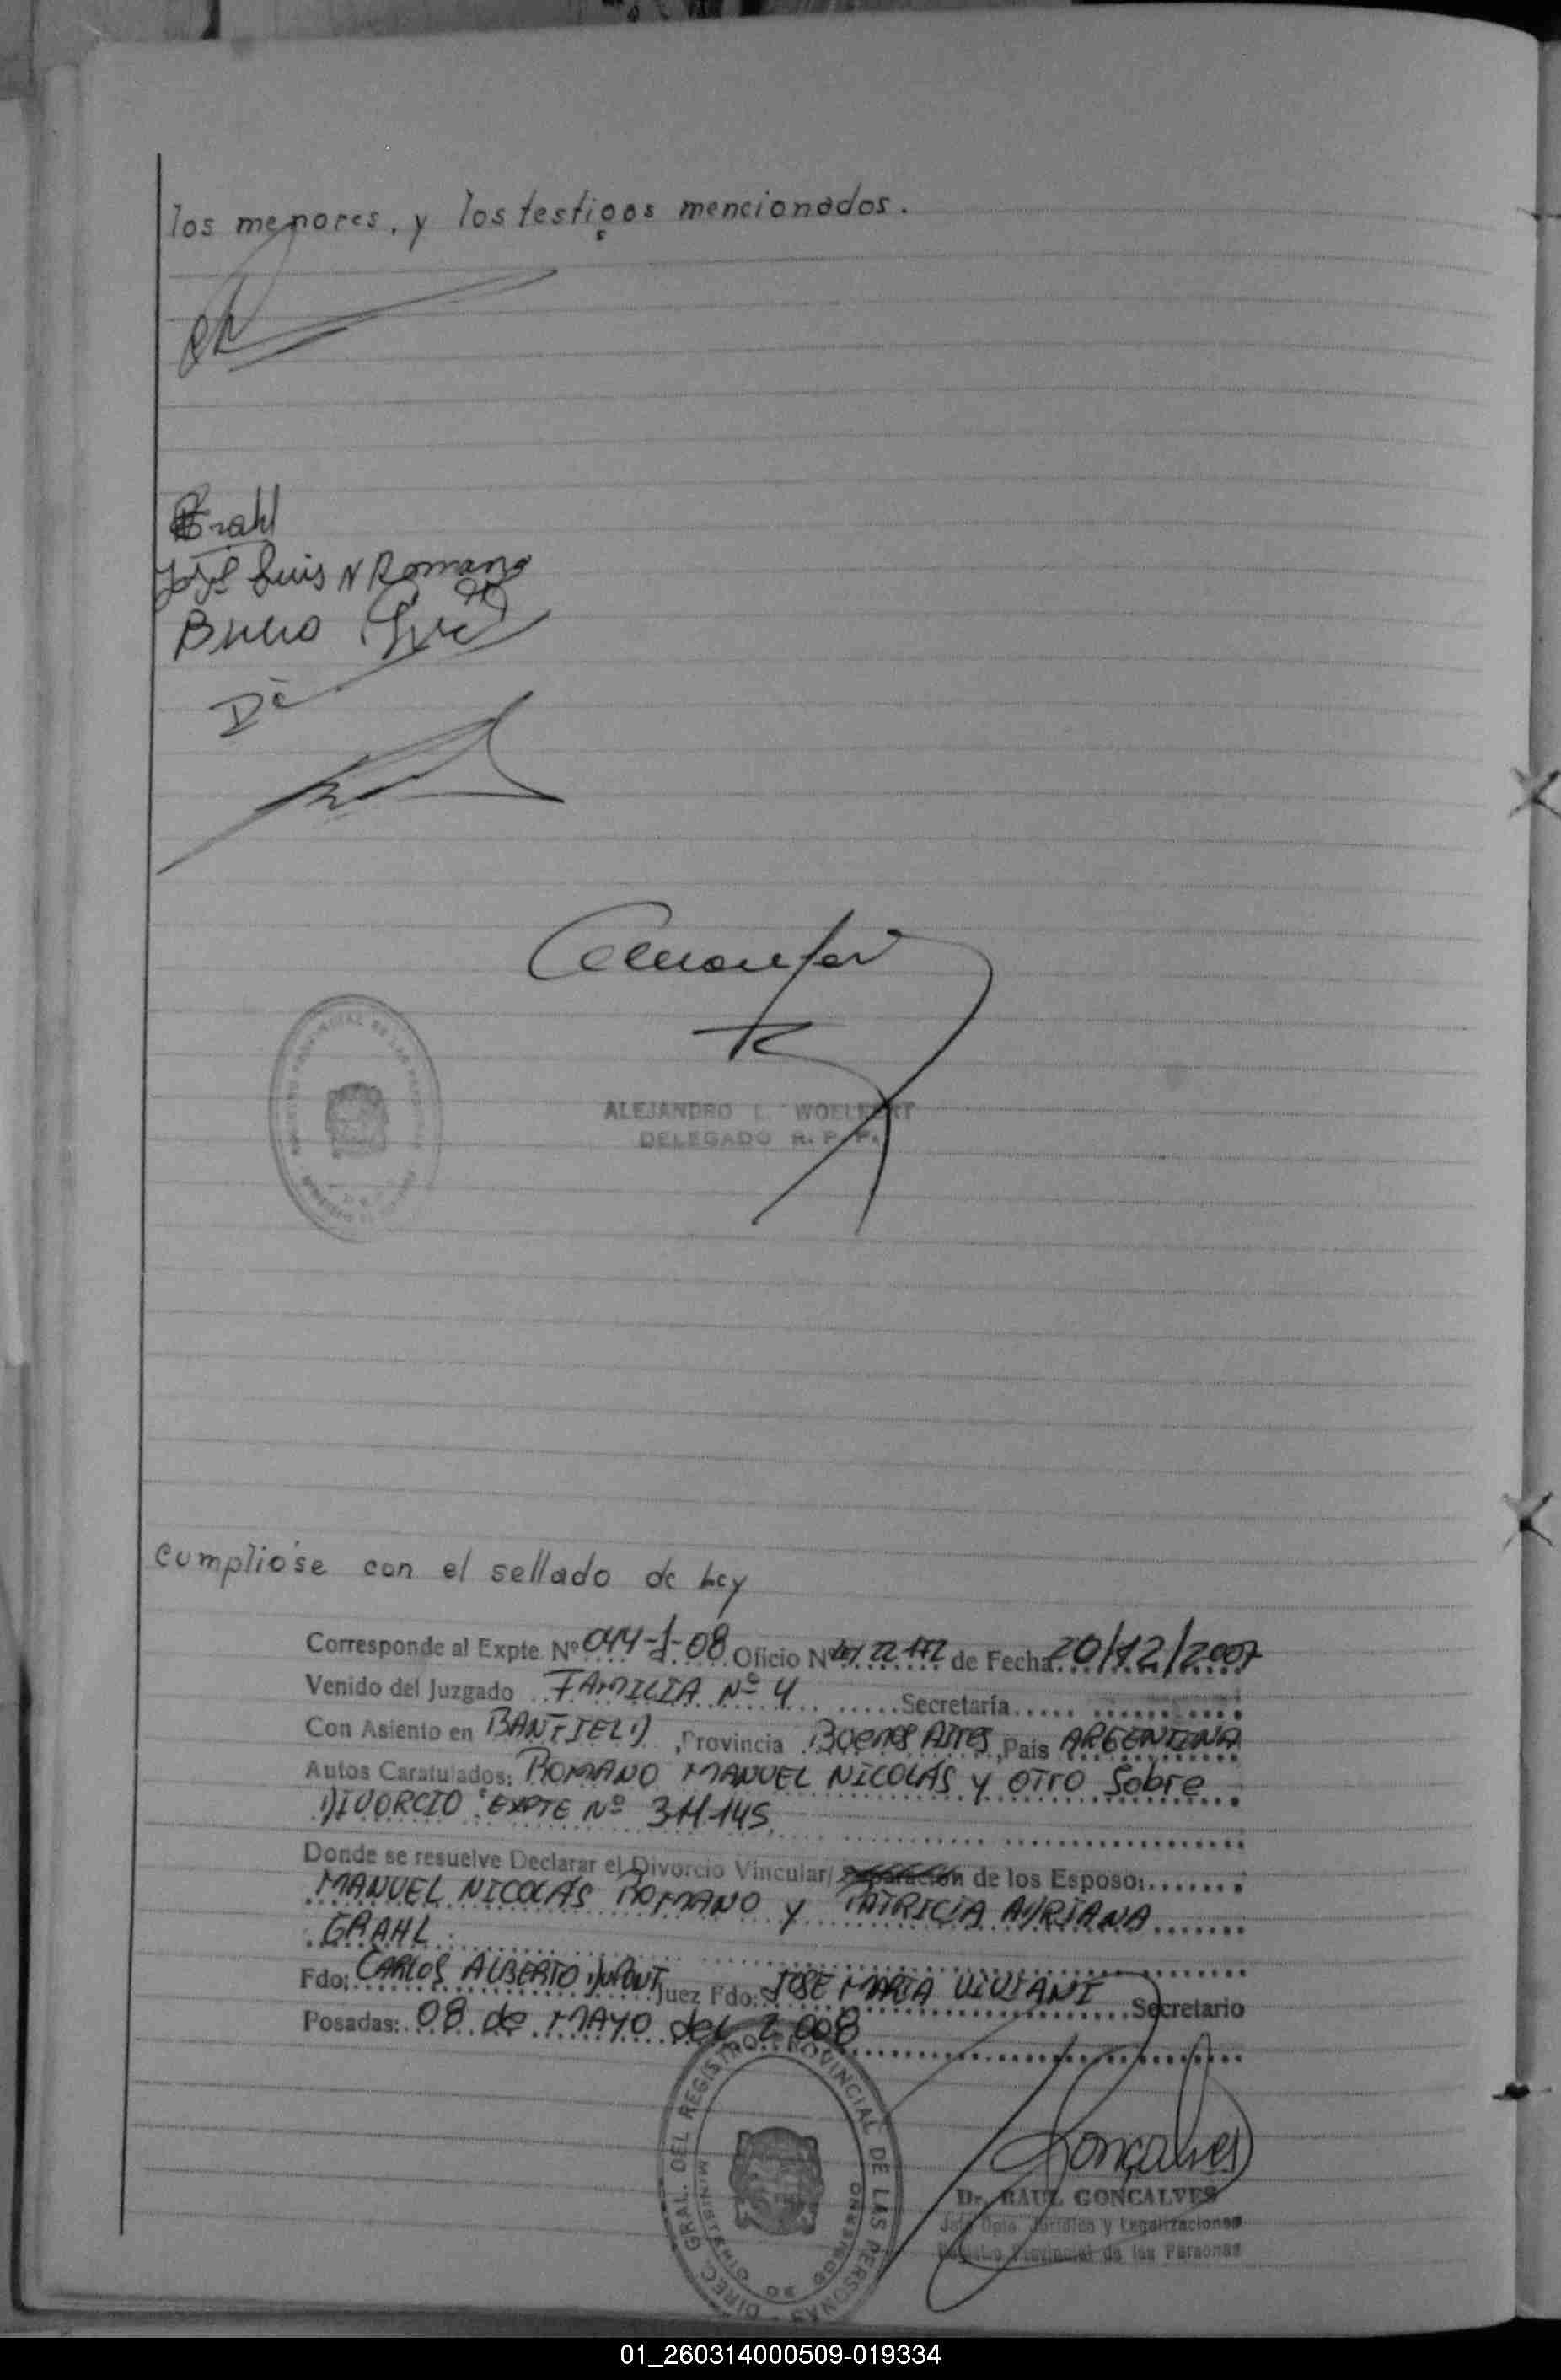 los menores, y los testigos mencionados.
Grahl
José Luis N Romano
Bruno
cumplióse con el sellado de Ley
ALEJANDRO L. WOELFERT
DELEGADO R. P. P.
Corresponde al Expte. Nº 044-J-08 Oficio Nº de Fecha 20/12/2007
Venido del Juzgado FAMILIA Nº 4 Secretaría
Con Asiento en BANFIELD, Provincia Buenos Aires, País ARGENTINA
Autos Caratulados: ROMANO MANUEL NICOLÁS y OTRO Sobre
DIVORCIO EXPTE Nº 311.145
Donde se resuelve Declarar el Divorcio Vincular/ Separación de los Esposo:
MANUEL NICOLÁS ROMANO y PATRICIA ADRIANA
GRAHL
Fdo: CARLOS ALBERTO DUPONT Juez Fdo: JOSE MARIA VIVIANI Secretario
Posadas: 08 de MAYO del 2008
DIREC. GRAL. DEL REGISTRO PROVINCIAL DE LAS PERSONAS
MINISTERIO DE GOBIERNO
Goncalves
Dr. RAUL GONCALVES
Jefe Dpto. Jurídico y Legalizaciones
Registro Provincial de las Personas
01_260314000509-019334